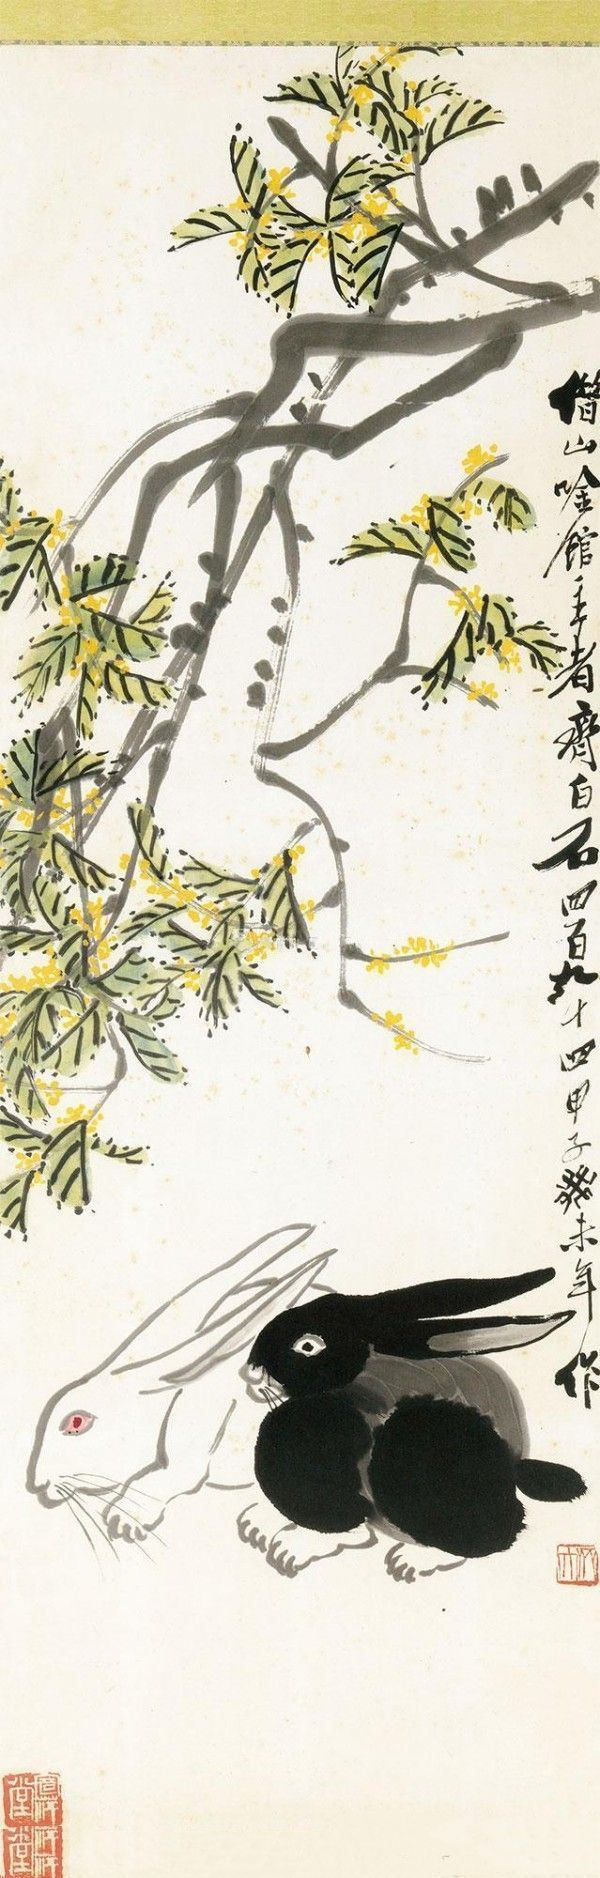 借山唫館主者齊白石四百九十四甲子癸未年作